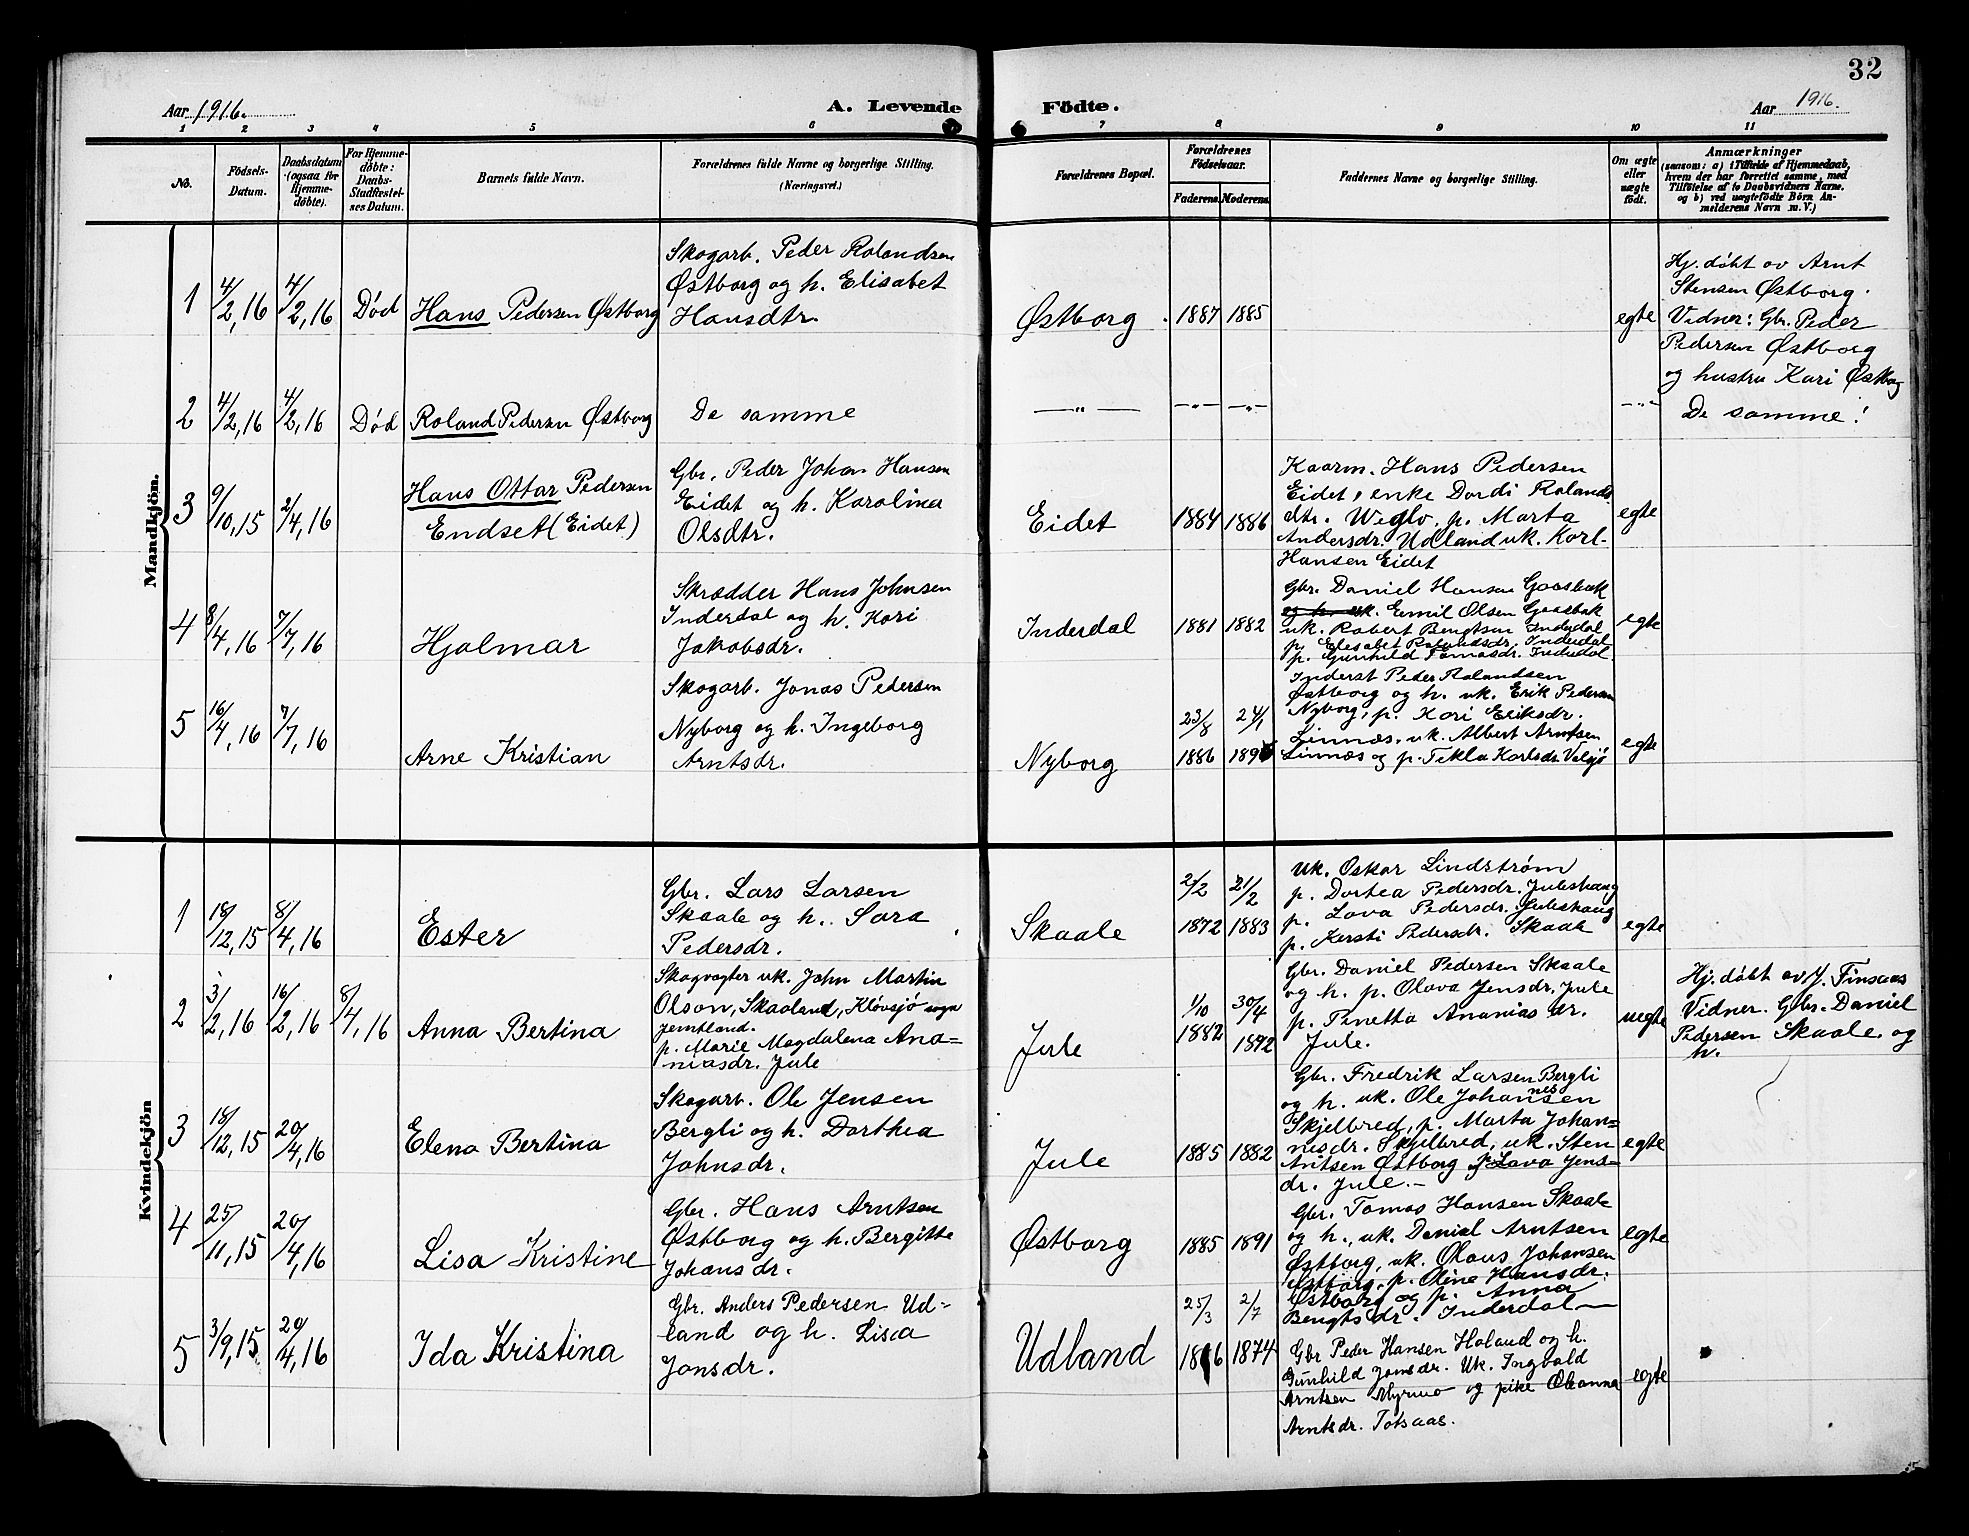 32
Aar 1916.
A. Levende Födte.
Aar 1916.
1 2 3 4 5 6 7 8 9 10 11
No.
Födsels-
Datum.
Daabsdatum
(ogsaa for
Hjemme-
döbte).
For Hjemme-
döbte:
Daabs-
Stadfæstel-
ses Datum.
Barnets fulde Navn.
Forældrenes fulde Navne og borgerlige Stilling.
(Næringsvei.)
Forældrenes Bopæl.
Forældrenes
Födselsaar.
Faderens. Moderens.
Faddernes Navne og borgerlige Stilling.
Om ægte
eller
uægte
födt.
Anmærkninger
(saasom: a) i Tilfælde af Hjemmedaab,
hvem der har forrettet samme, med
Tilföielse af to Daabsvidners Navne,
og b) ved uægtefödte Börn An-
melderens Navn m. V.)
Mandkjön.
1
4/2, 16
4/2, 16
Död
Hans Pedersen Østborg
Skogarb. Peder Rolandsen
Østborg og h. Elisabet
Hansdtr.
Østborg.
1887 1885
egte
Hj. döbt av Arnt
Stensen Østborg.
Vidner: Gbr. Peder
Pedersen Østborg
og hustru Kari Østborg
2
4/2, 16
4/2, 16
Död
Roland Pedersen Østborg
De samme
—"— —"— —"—
—"—
De samme!
3
9/10, 15
2/4, 16
Hans Ottar Pedersen
Endset (Eidet)
Gbr. Peder Johan Hansen
Eidet og h. Karolina
Olsdtr.
Eidet
1884 1886
Kaarm. Hans Pedersen
Eidet, enke Dordi Rolands
dtr. Weglo, p. Marta
Andersdr. Udland uk. Karl
Hansen Eidet
egte
4
8/4, 16
7/7, 16
Hjalmar
Skrædder Hans Johnsen
Inderdal og h. Kari
Jakobsdr.
Inderdal
1881 1882
Gbr. Daniel Hansen Gaasbak
uk. Emil Olsen Gaasbak
uk. Robert Bengtsen Inderdal
p. Elisabet Rolandsdr. Inderdal
p. Gunhild Tomasdr. Inderdal.
egte
5
16/4, 16
7/7, 16
Arne Kristian
Skogarb. Jonas Pedersen
Nyborg og h. Ingeborg
Arntsdr.
Nyborg
23/8 24/1
1886
Inderst Peder Rolandsen
Østborg og h. uk. Erik Pedersen
Nyborg, p. Kari Eriksdr.
Linnæs, uk. Albert Arntsen
Linnæs og p. Tekla Karlsdr. Valsjö
egte
Kvindekjön
1
18/12, 15
8/4, 16
Ester
Gbr. Lars Larsen
Skaale og h. Sara
Pedersdr.
Skaale
2/2 21/2
1872 1883
uk. Oskar Lindström
p. Dortea Pedersdr. Juleshaug
p. Lava Pedersdr. Juleshaug
p. Kersti Pedersdr. Skaale
egte
2
3/2, 16
16/2, 16
8/4, 16
Anna Bertina
Skogvogter uk. John Martin
Olson, Skaaland, Klövsjö sogn
jemtland.
p. Marie Magdalena Ana=
niasdr. Jule
Jule
1/10 30/4
1882 1892
Gbr. Daniel Pedersen Skaale
og h. p. Olava Jensdr. Jule
p. Pinetta Ananias dr.
Jule.
uegte
Hj. döbt av J. Finsaas
Vidner. Gbr. Daniel
Pedersen Skaale og
h.
3
18/12, 15
20/4, 16
Elena Bertina
Skogarb. Ole Jensen
Bergli og h. Dorthea
Johnsdr.
Jule
1885 1882
Gbr. Fredrik Larsen Bergli
og h. uk. Ole Johannessen
Skjelbred, p. Marta Johan=
nesdr. Skjelbred, uk. Sten
Arntsen Østborg p. Lava Jens=
dr. Jule.—
egte
4
25/11, 15
20/4, 16
Lisa Kristine
Gbr. Hans Arntsen
Østborg og h. Bergitte
Johansdr.
Østborg
1885 1891
Gbr. Tomas Hansen Skaale
og h., uk. Daniel Arntsen
Østborg, uk. Olaus Johansen
Østborg, p. Oline Hansdr.
Østborg og p. Anna
Bengtsdr. Inderdal—
egte
5
3/9, 15
20/4, 16
Ida Kristina
Gbr. Anders Pedersen Ud=
land og h. Lisa
Jonsdr.
Udland
25/3 2/7
1874
Gbr Peder Hansen Holand og h.
Gunhild Jonsdr. Uk. Ingvald
Arntsen Myrmo og pike Oleanna
Arntsdr. Totsaas.
egte